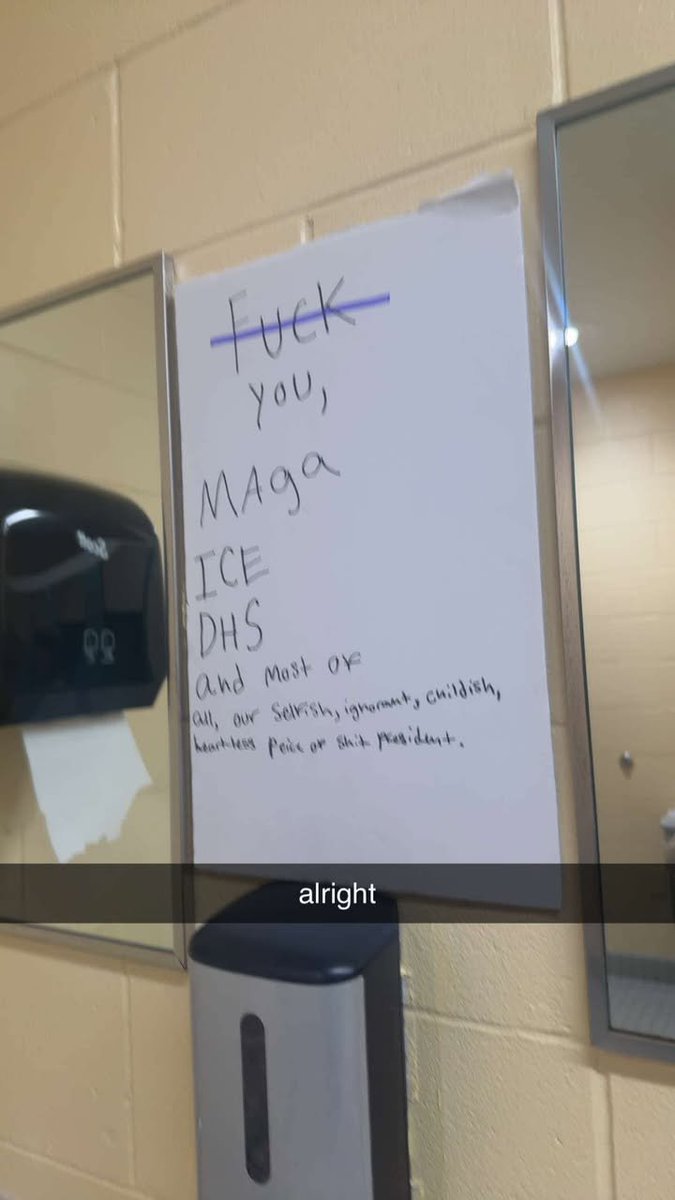 Fuck
you,
MAga
ICE
DHS
and most of
all, our selfish, ignorant, childish,
heartless peice of shit president.
alright